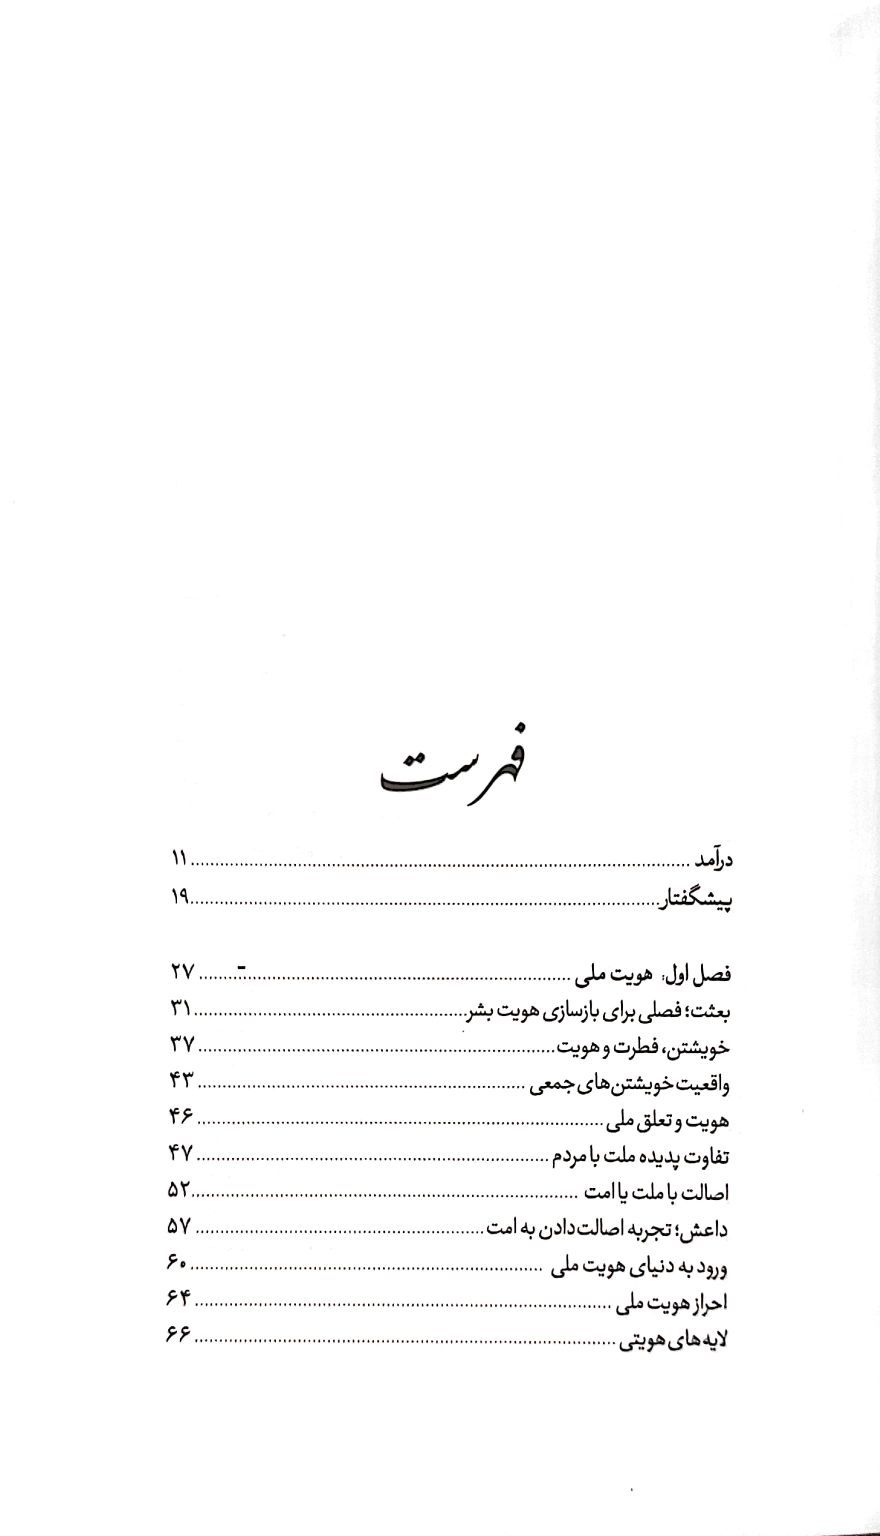 فهرست
درآمد ........ ۱۱
پیشگفتار ........ ۱۹
فصل اول: هویت ملی ........ ۲۷
بعثت؛ فصلی برای بازسازی هویت بشر ........ ۳۱
خویشتن، فطرت و هویت ........ ۳۷
واقعیت خویشتن‌های جمعی ........ ۴۳
هویت و تعلق ملی ........ ۴۶
تفاوت پدیده ملت با مردم ........ ۴۷
اصالت با ملت یا امت ........ ۵۲
داعش؛ تجربه اصالت‌دادن به امت ........ ۵۷
ورود به دنیای هویت ملی ........ ۶۰
احراز هویت ملی ........ ۶۴
لایه‌های هویتی ........ ۶۶